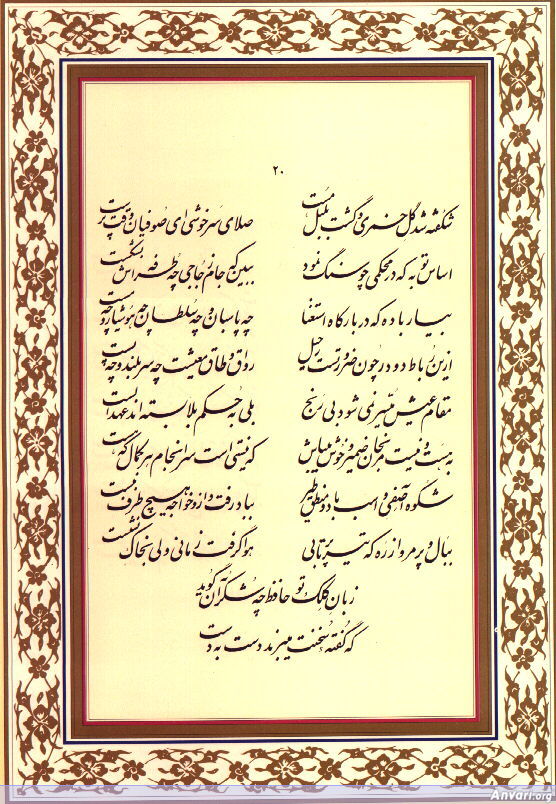 ۲۰
شکفته شد گل حمری و گشت بلبل مست صلای سرخوشی ای صوفیان وقت پرست
اساس توبه که در محکمی چو سنگ نمود ببین که جام زجاجی چه طرفه اش بشکست
بیار باده که در بارگاه استغنا چه پاسبان و چه سلطان چه هوشیار و چه مست
ازین رباط دو در چون ضرورتست رحیل رواق و طاق معیشت چه سربلند و چه پست
مقام عیش میسر نمی شود بی رنج بلی به حکم بلا بسته اند عهد الست
به هست و نیست مرنجان ضمیر و خوش میباش که نیستی است سرانجام هر کمال که هست
شکوه آصفی و اسب باد و منطق طیر بباد رفت و ازو خواجه هیچ طرف نبست
ببال و پر مرو از ره که تیر پرتابی هوا گرفت زمانی ولی بخاک نشست
زبان کلک تو حافظ چه شکر آن گوید
که گفته سخنت میبرند دست به دست
Anvari.org